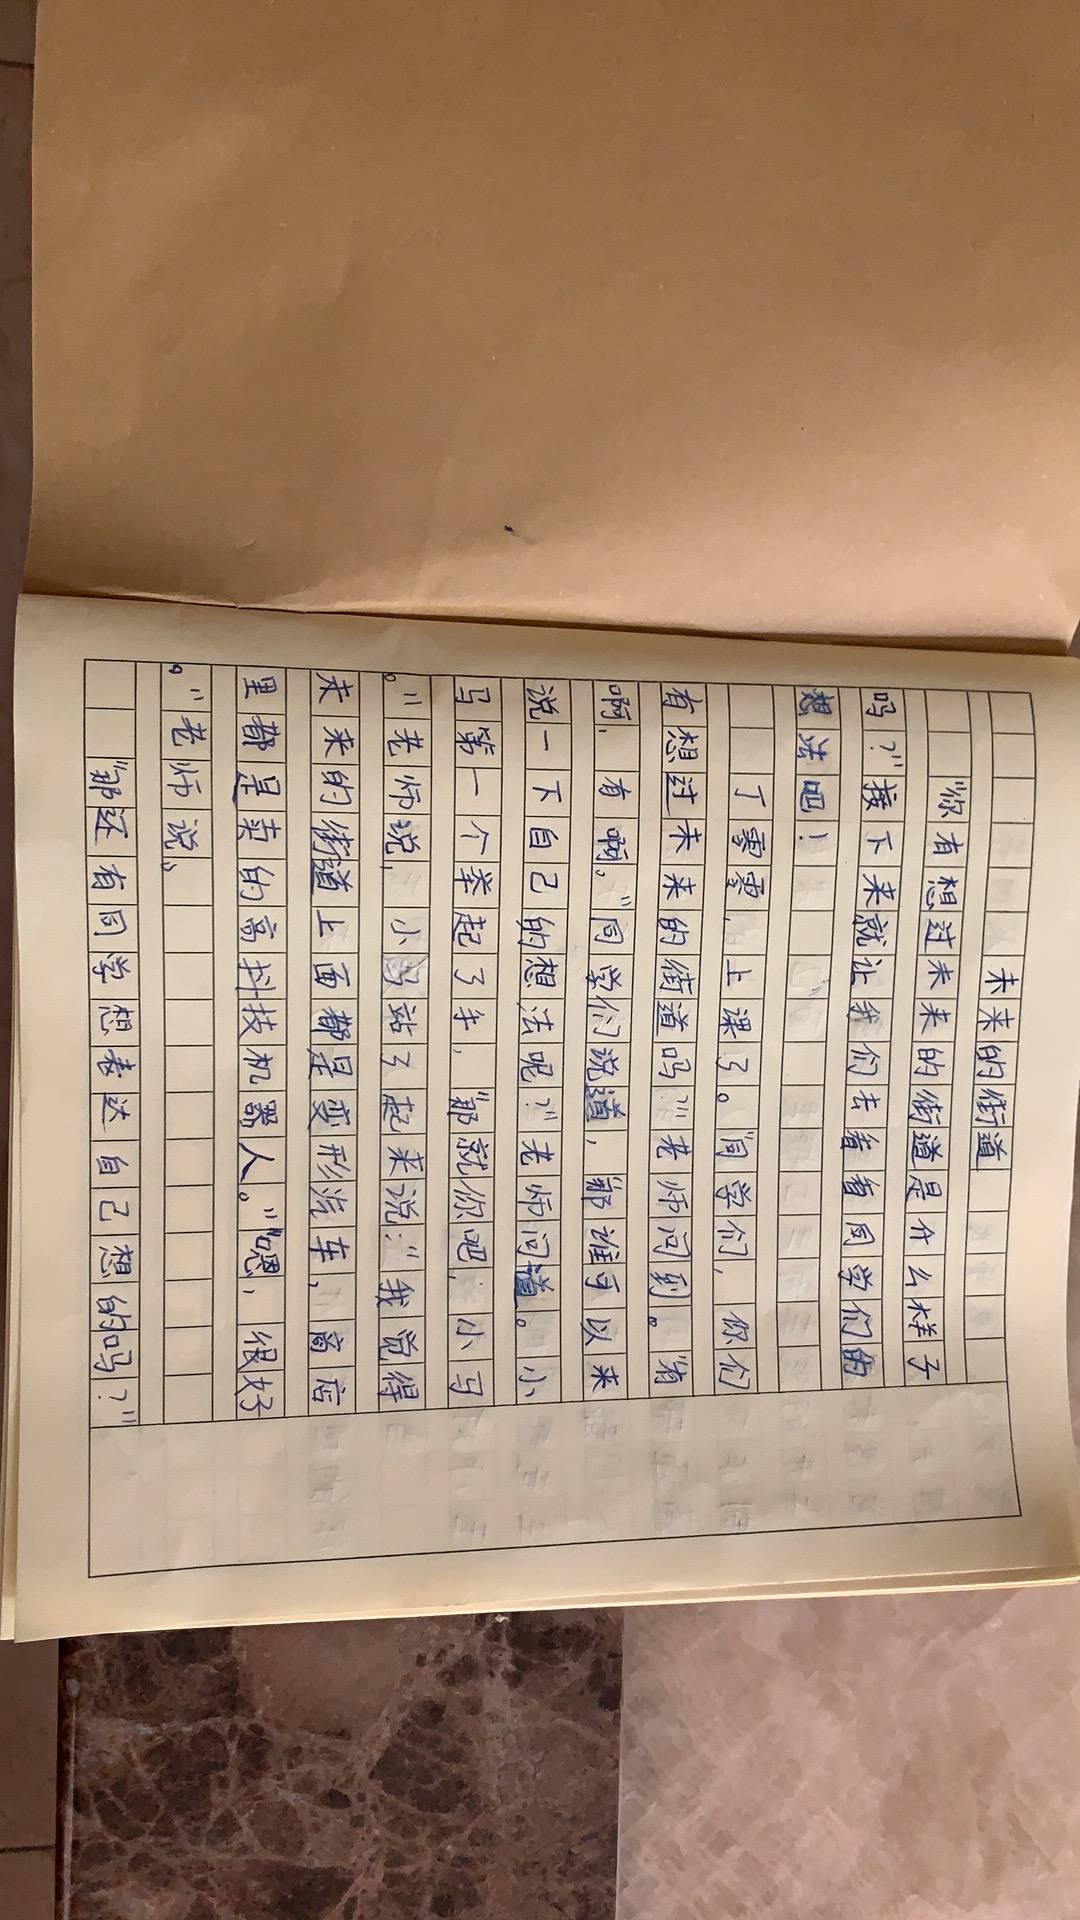 未来的街道
“你有想过未来的街道是什么样子
吗？”接下来就让我们去看看同学们的
想法吧！
丁零零，上课了。“同学们，你们
有想过未来的街道吗？”老师问到。“有
啊，有啊。”同学们说道，“那谁可以来
说一下自己的想法呢？”老师问道。小
马第一个举起了手，“那就你吧，小马
。”老师说，小马站了起来说：“我觉得
未来的街道上面都是变形汽车，商店
里都是卖的高科技机器人。”“嗯，很好
。”老师说。
“那还有同学想表达自己想的吗？”